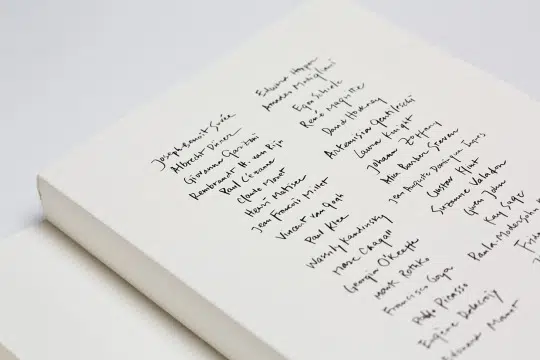 Joseph-Benoît Suvée
Albrecht Dürer
Giovanna Garzoni
Rembrandt H. van Rijn
Paul Cézanne
Claude Monet
Henri Matisse
Jean Francis Millet
Vincent van Gogh
Paul Klee
Wassily Kandinsky
Marc Chagall
Georgia O'Keeffe
Mark Rothko
Francisco Goya
Pablo Picasso
Eugène Delacroix
Edouard Manet
Edward Hopper
Amedeo Modigliani
Egon Schiele
René Magritte
David Hockney
Artemisia Gentileschi
Laura Knight
Johann Zoffany
Alla Barker Seaver
Jean Auguste Dominique Ingres
Gustav Klimt
Suzanne Valadon
Gwen John
Kay Sage
Paula Modersohn
Frida